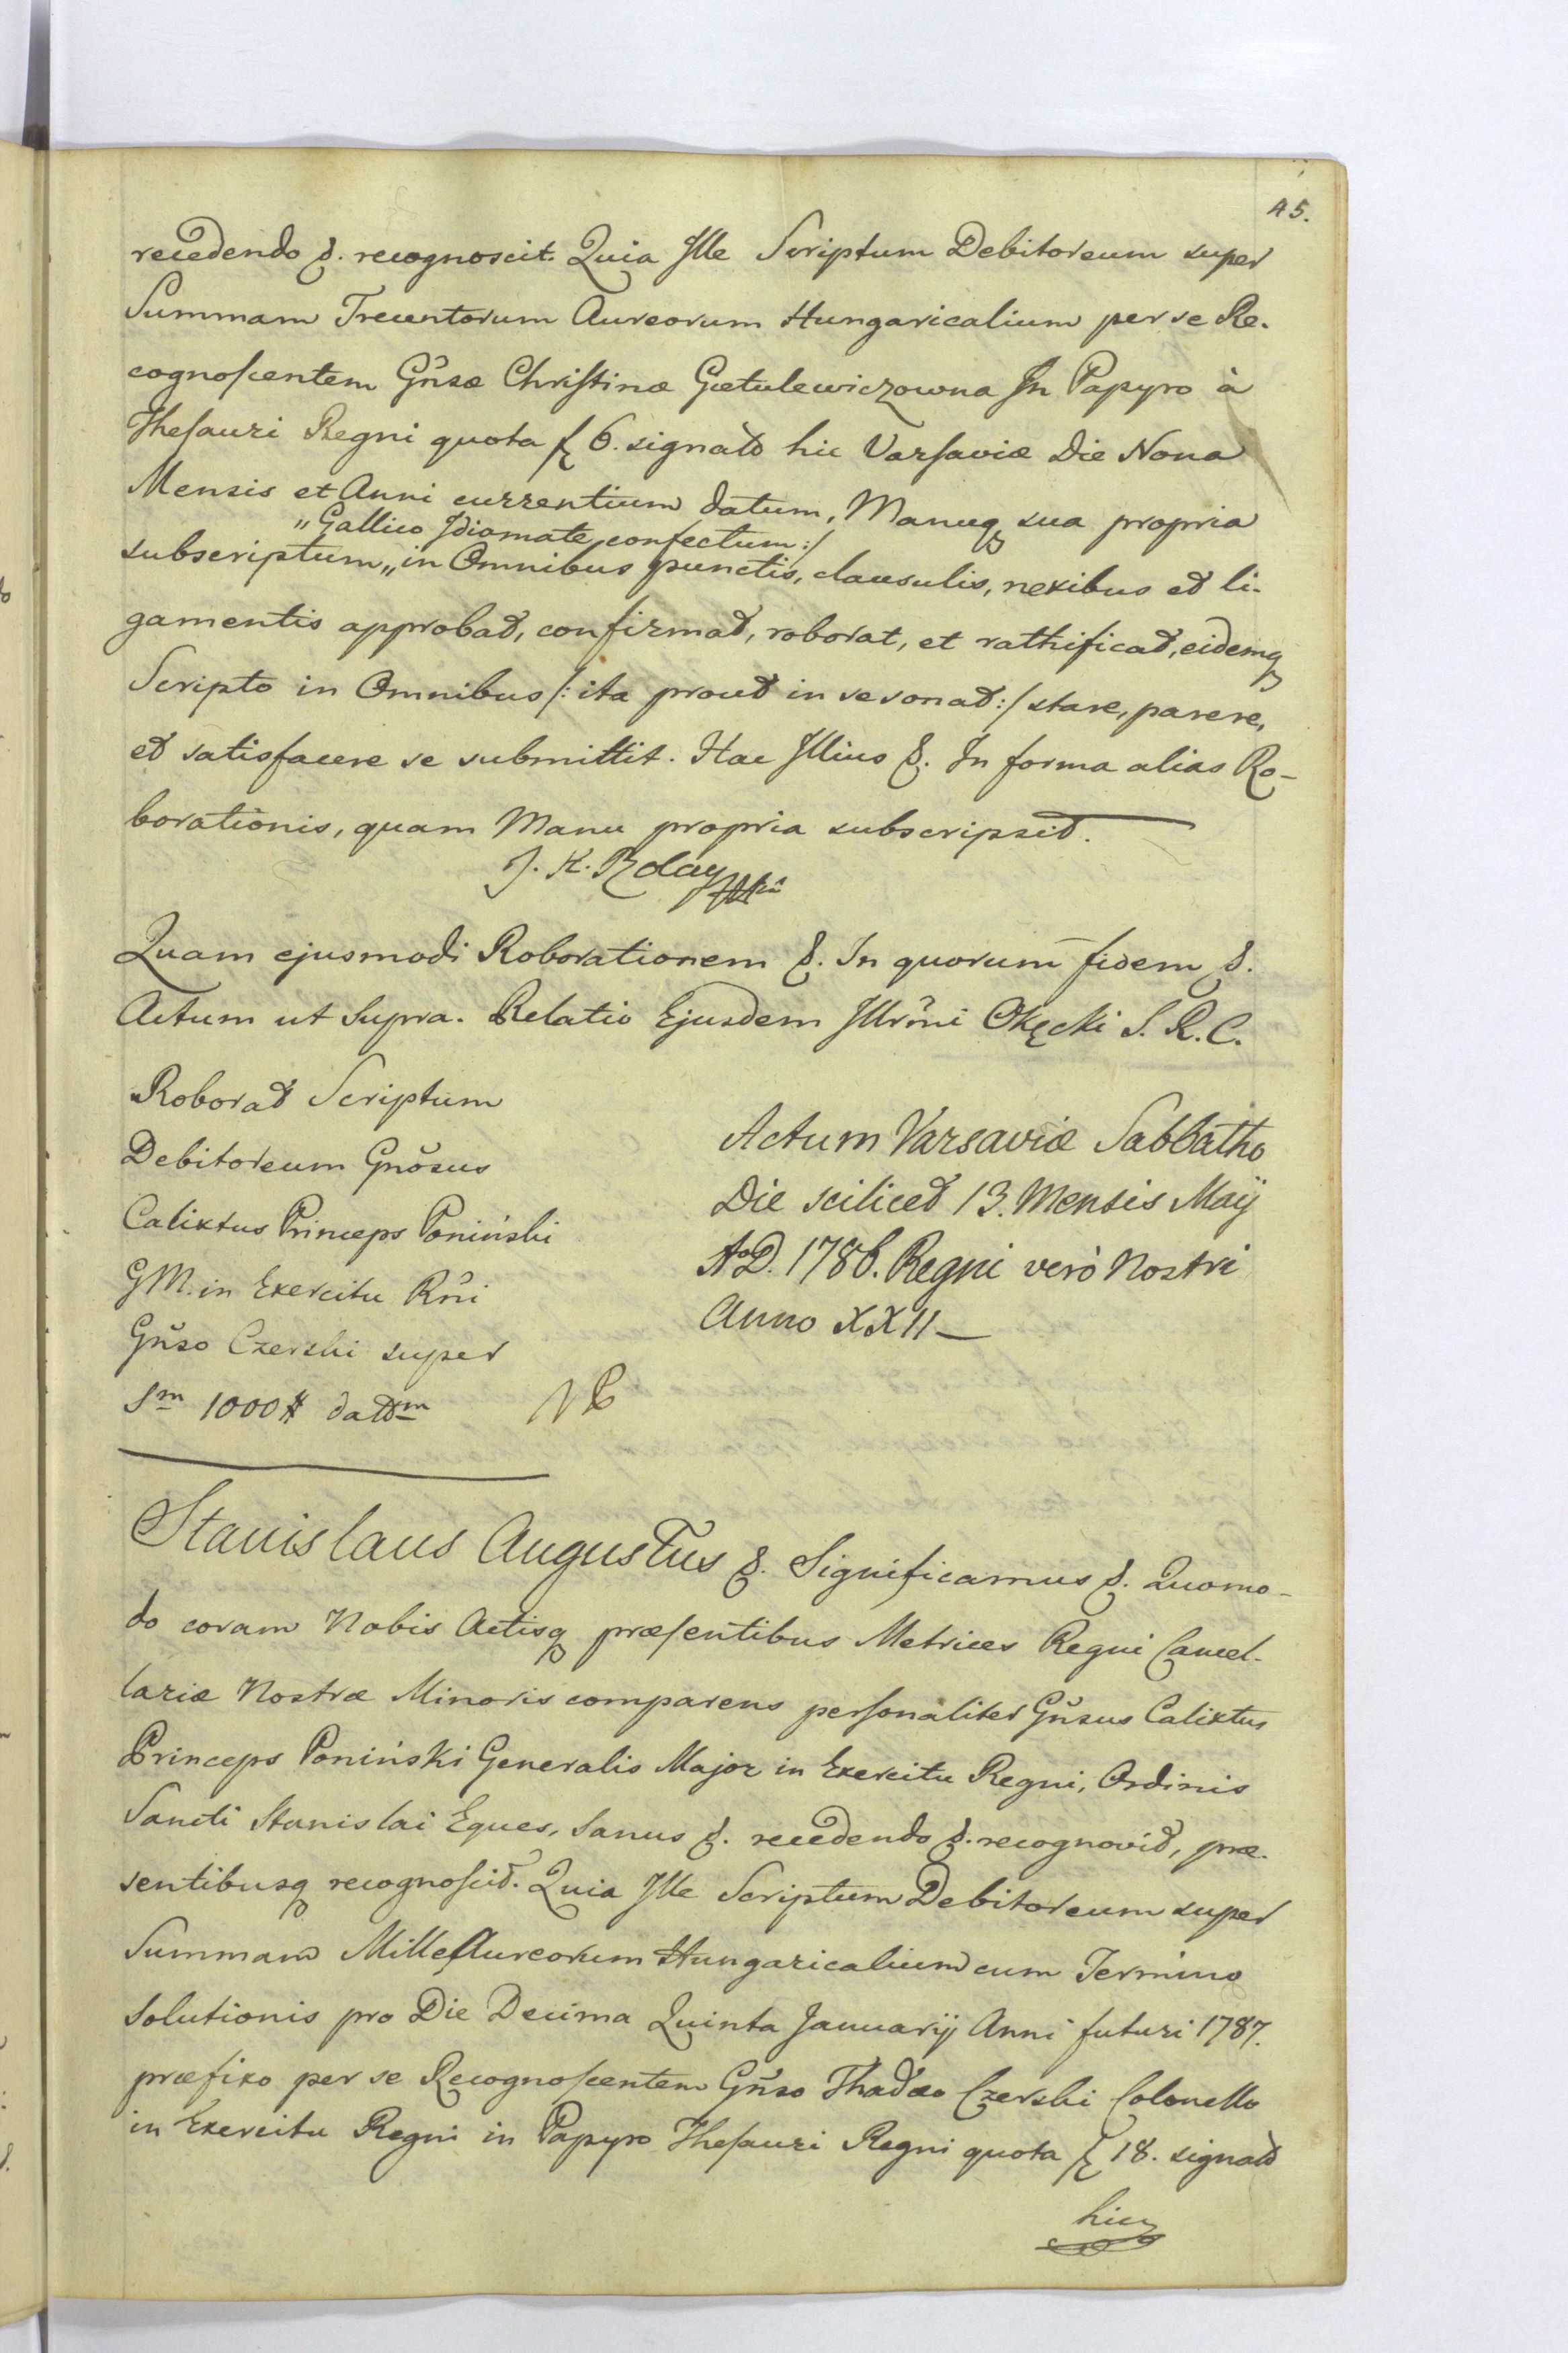 45.
recedendo &. recognoscit. Quia Ille Scriptum Debitoreum super
Summam Trecentorum Aureorum Hungaricalium per se Re-
cognoscentem Gñsæ Christinæ Gœtulewiczowna In Papyro à
Thesauri Regni quota f 6. signato hic Varsaviæ Die Nona
Mensis et Anni currentium datum, Manuq sua propria
„Gallico Idiomate confectum:/
subscriptum„ in Omnibus punctis, clausulis, nexibus et li-
gamentis approbat, confirmat, roborat, et rathificat, eidemq
Scripto in Omnibus /: ita prout in se sonat :/ stare, parere,
et satisfacere se submittit. Hac Illius &. In forma alias Ro-
borationis, quam Manu propria subscripsit.
J. K.
Quam ejusmodi Roborationem &. In quorum fidem &.
Actum ut Supra. Relatio Ejusdem Illrm̃i Okęcki S. R. C.
Roborat Scriptum
Debitoreum Gnõsus
Calixtus Princeps Poniński
GM. in Exercitu Rñi
Gñso Czerski super
Sm 1000 # dattm
NB
Actum Varsaviæ Sabbatho
Die scilicet 13. Mensis Maÿ
AoD. 1786. Regni verò Nostri
Anno XXII
Stanislaus Augustus &. Significamus &. Quomo-
do coram Nobis Actisq præsentibus Metrices Regni Cancel-
lariæ Nostræ Minoris comparens personaliter Gñsus Calixtus
Princeps Poniński Generalis Major in Exercitu Regni, Ordinis
Sancti Stanislai Eques, Sanus &. recedendo &. recognovit, præ-
sentibusq recognoscit. Quia Ille Scriptum Debitoreum super
Summam Mille Aureorum Hungaricalium cum Termino
Solutionis pro Die Decima Quinta Januarij Anni futuri 1787.
præfixo per se Recognoscentem Gñso Thadæo Czerski Colonello
in Exercitu Regni in Papyro Thesauri Regni quota f 18. signato
hic